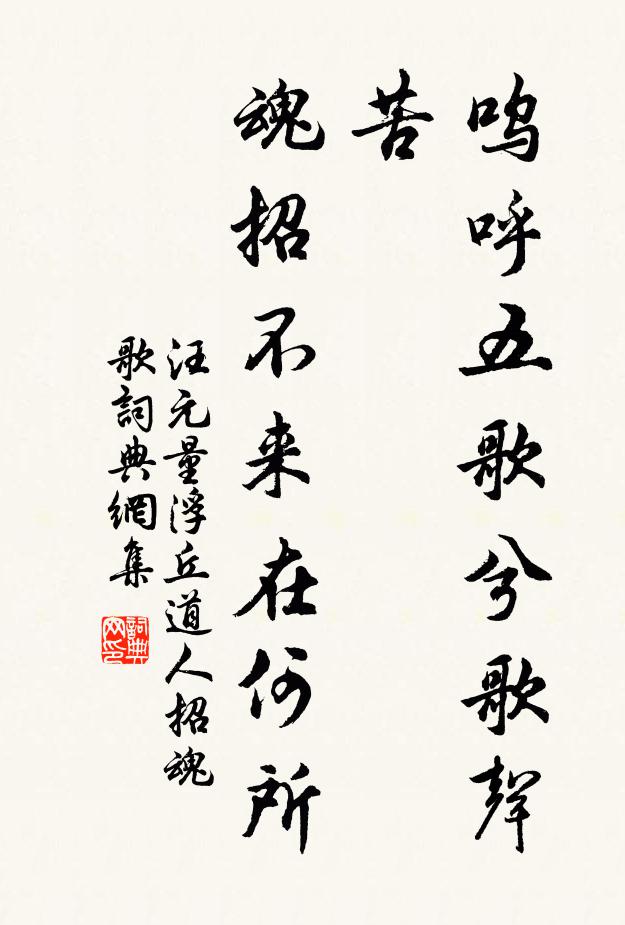 呜呼五歌兮歌聲
苦
魂招不来在何所
汪元量浮丘道人招魂
歌詞典網集
詞典
网印